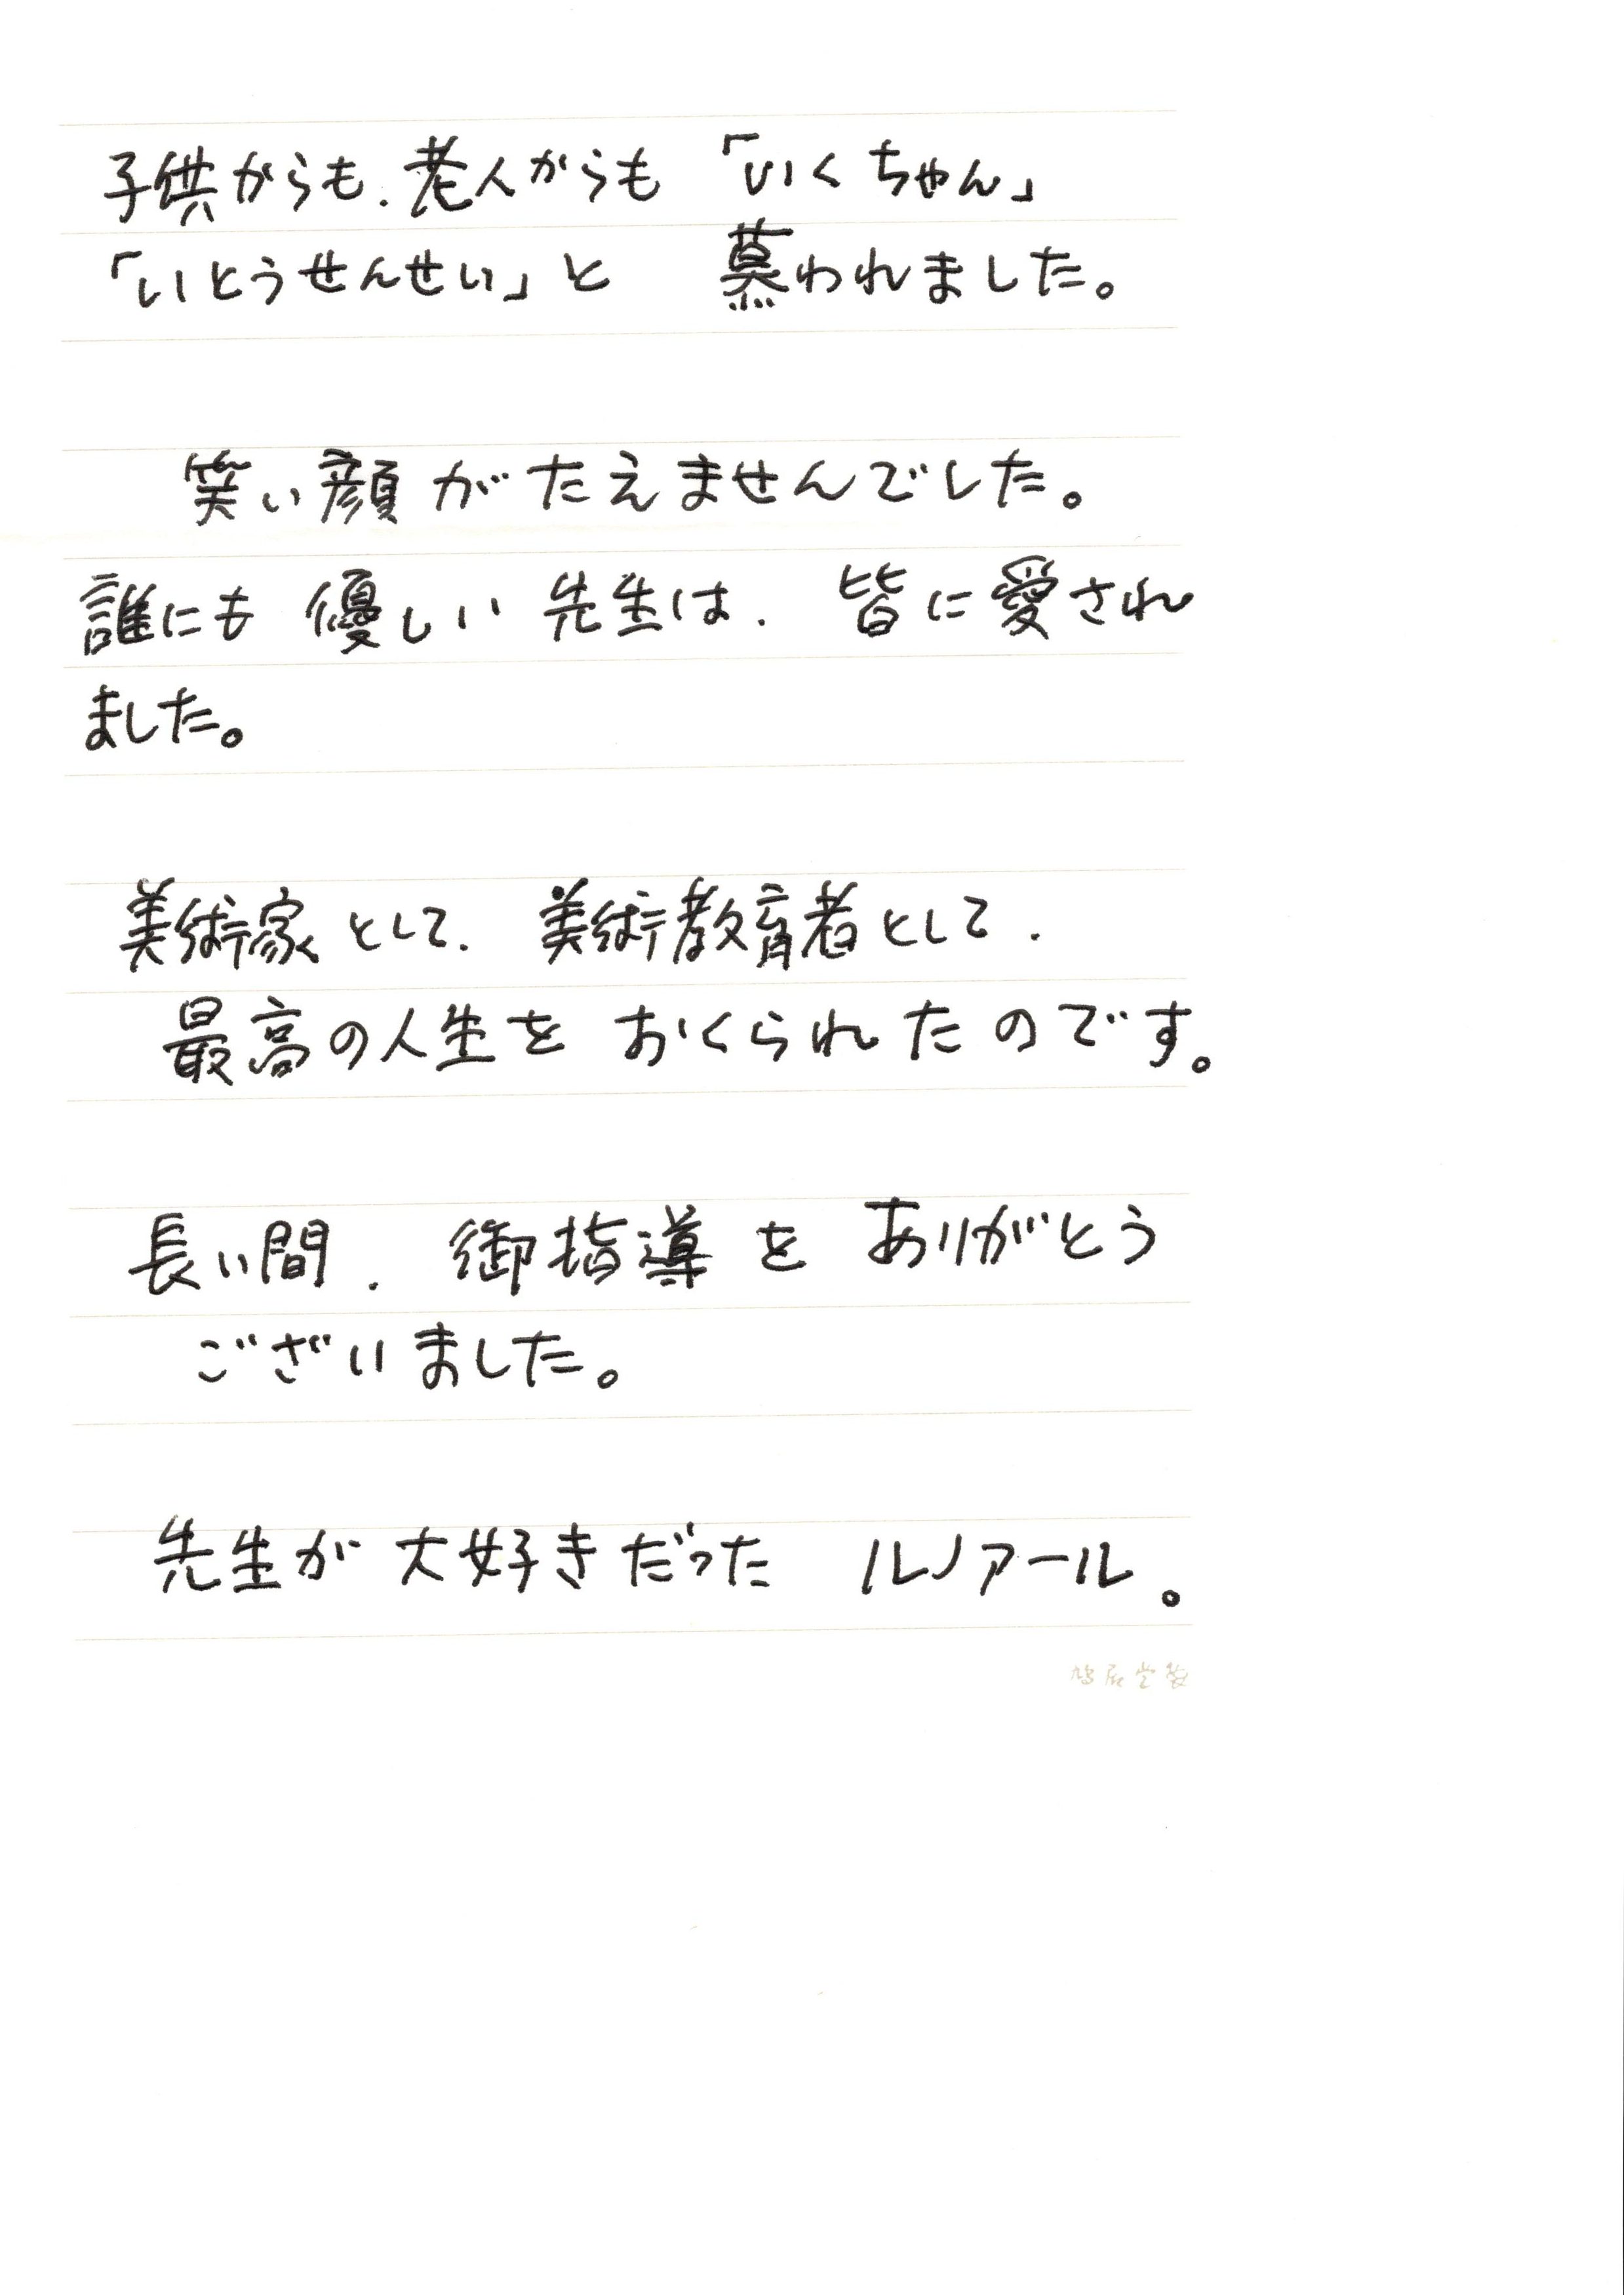 子供からも、老人からも「いくちゃん」
「いとうせんせい」と 慕われました。
笑い顔がたえませんでした。
誰にも優しい先生は、皆に愛され
ました。
美術家として、美術教育者として、
最高の人生を おくられたのです。
長い間、御指導を ありがとう
ございました。
先生が大好きだった ルノアール。
鳩居堂製